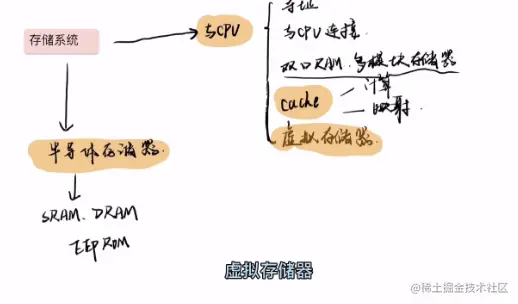 存储系统
与CPU
寻址
与CPU连接.
双口RAM.多模块存储器
cache
计算
映射.
虚拟存储器.
半导体存储器.
SRAM.DRAM
EEPROM
虚拟存储器
@稀土掘金技术社区